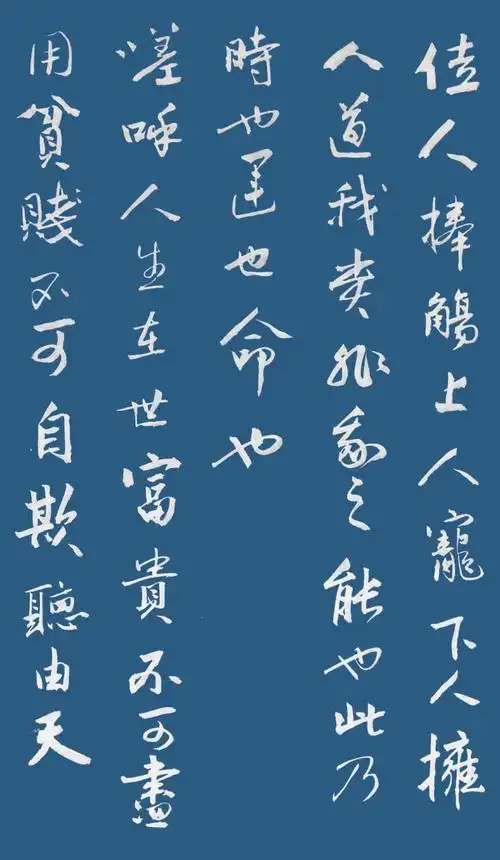 佳人捧觴上人寵下人擁
人道我貴非我之能也此乃
時也運也命也
嗟呼人生在世富貴不可盡
用貧賤不可自欺聽由天